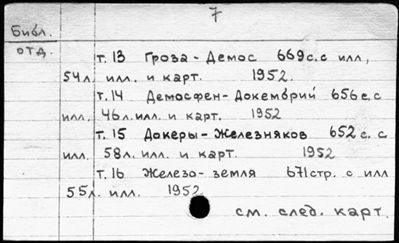 7
Библ.
отд.
т. 13 Гроза - Демос 669с. с илл,
54л. илл. и карт. 1952.
т. 14 Демосфен - Докембрий 656 с. с
илл. 46л. илл. и карт. 1952
т. 15 Докеры - Железняков 652 с. с
илл. 58л. илл. и карт. 1952
т. 16 Железо - земля 671стр. с илл
55л. илл. 1952
см. след. карт.